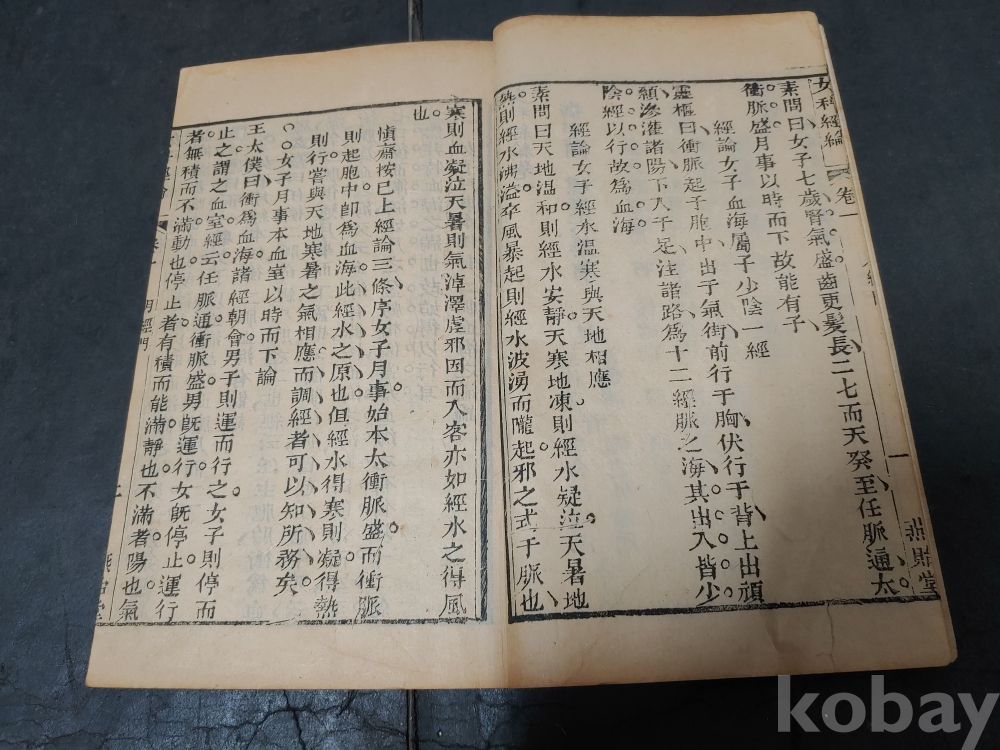 女科經綸 卷一 一 燕貽堂
素問曰女子七歲腎氣盛齒更髮長二七而天癸至任脈通太
衝脈盛月事以時而下故能有子
經論女子血海屬于少陰一經
靈樞曰衝脈起于胞中出于氣街前行于胸伏行于背上出頏
顙滲灌諸陽下入于足注諸路為十二經脈之海其出入皆少
陰經以行故為血海
經論女子經水溫寒與天地相應
素問曰天地溫和則經水安靜天寒地凍則經水凝泣天暑地
熱則經水沸溢卒風暴起則經水波湧而隴起邪之式于脈也
寒則血凝泣天暑則氣淖澤虛邪因而入客亦如經水之得風
也
慎齋按已上經論三條序女子月事始本太衝脈盛而衝脈
則起胞中卽為血海此經水之原也但經水得寒則凝得熱
則行嘗與天地寒暑之氣相應而調經者可以知所務矣
○○女子月事本血室以時而下論
王太僕曰衝為血海諸經朝會男子則運而行之女子則停而
止之謂之血室經云任脈通衝脈盛男旣運行女旣停止運行
者無積而不滿動也停止者有積而能滿靜也不滿者陽也氣
月經門
kobay